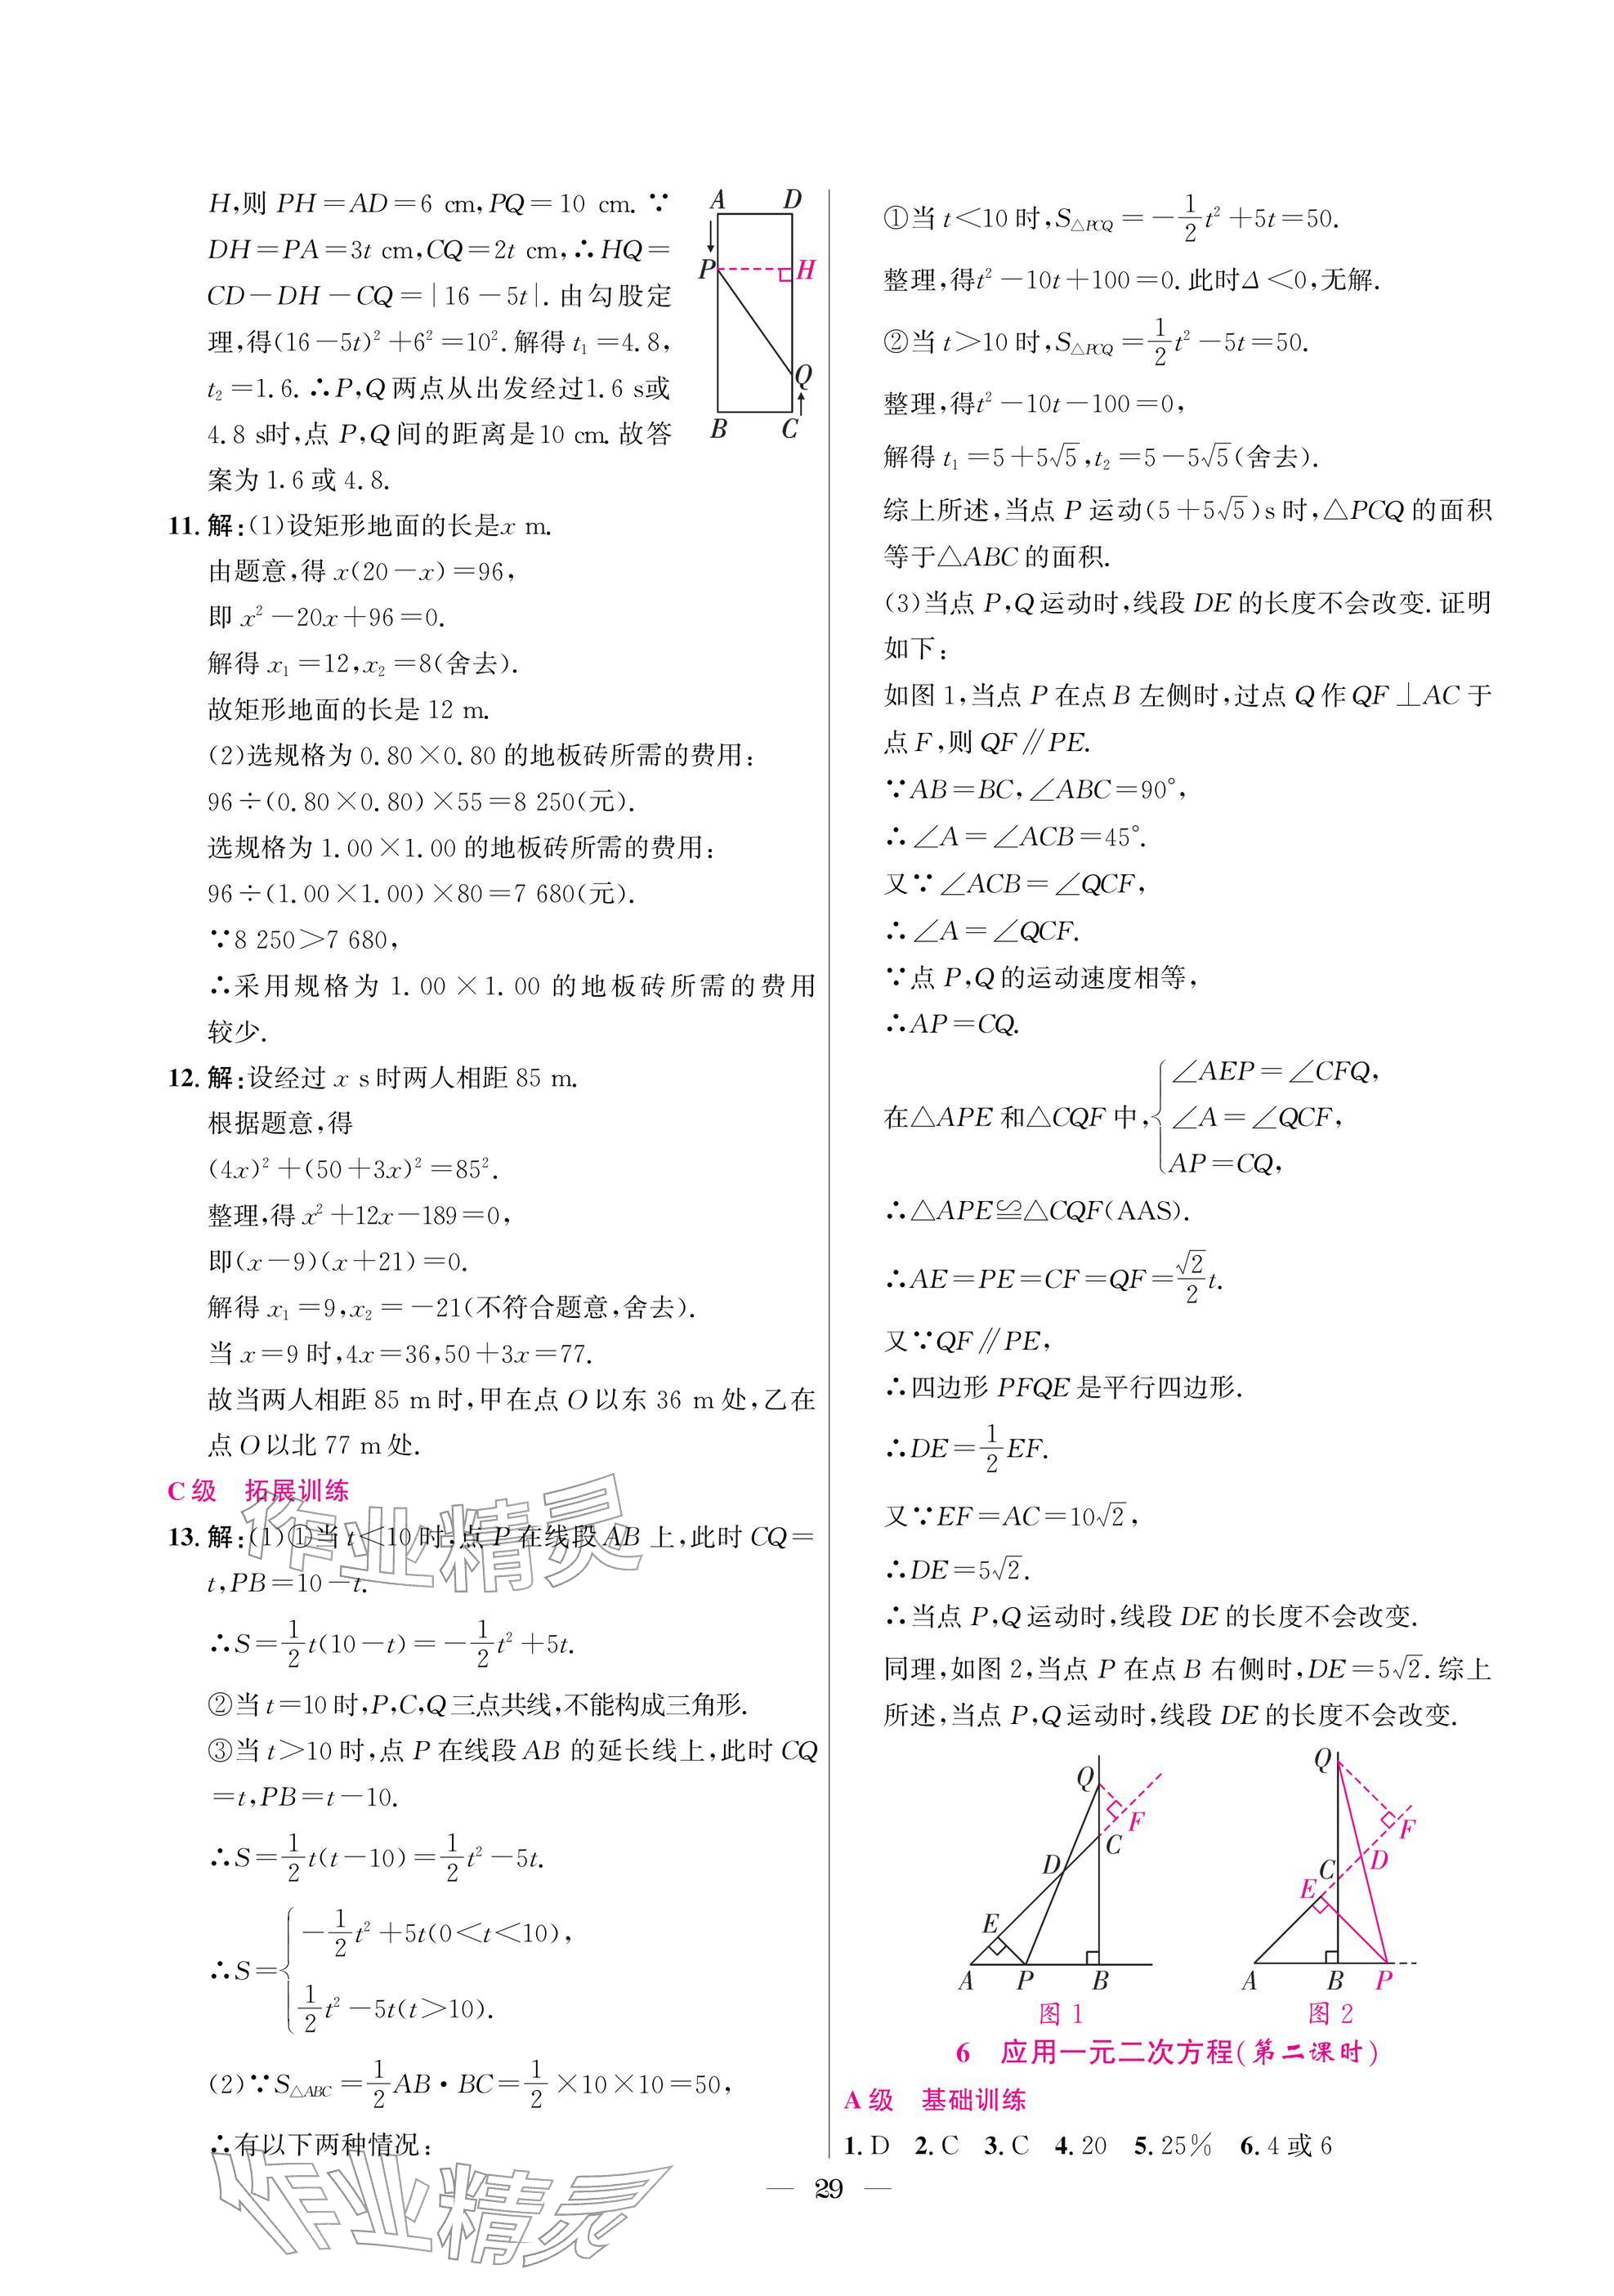 H,则 PH=AD=6 cm,PQ=10 cm.∵
DH=PA=3t cm,CQ=2t cm,∴HQ=
CD-DH-CQ=|16-5t|.由勾股定
理,得(16-5t)²+6²=10².解得 t₁=4.8,
t₂=1.6.∴P,Q 两点从出发经过1.6 s或
4.8 s时,点 P,Q 间的距离是10 cm.故答
案为 1.6 或 4.8.
A D
P H
Q
B C
11.解:(1)设矩形地面的长是x m.
由题意,得 x(20-x)=96,
即 x²-20x+96=0.
解得 x₁=12,x₂=8(舍去).
故矩形地面的长是 12 m.
(2)选规格为 0.80×0.80 的地板砖所需的费用:
96÷(0.80×0.80)×55=8 250(元).
选规格为 1.00×1.00 的地板砖所需的费用:
96÷(1.00×1.00)×80=7 680(元).
∵8 250>7 680,
∴采用规格为 1.00×1.00 的地板砖所需的费用
较少.
12.解:设经过 x s时两人相距 85 m.
根据题意,得
(4x)²+(50+3x)²=85².
整理,得 x²+12x-189=0,
即(x-9)(x+21)=0.
解得 x₁=9,x₂=-21(不符合题意,舍去).
当 x=9 时,4x=36,50+3x=77.
故当两人相距 85 m时,甲在点 O 以东 36 m 处,乙在
点 O 以北 77 m处.
C 级 拓展训练
13.解:(1)①当 t<10 时,点 P 在线段 AB 上,此时 CQ=
t,PB=10-t.
∴S=1/2t(10-t)=-1/2t²+5t.
②当 t=10 时,P,C,Q 三点共线,不能构成三角形.
③当 t>10 时,点 P 在线段 AB 的延长线上,此时 CQ
=t,PB=t-10.
∴S=1/2t(t-10)=1/2t²-5t.
∴S={-1/2t²+5t(0<t<10),
1/2t²-5t(t>10).
(2)∵S△ABC=1/2AB·BC=1/2×10×10=50,
∴有以下两种情况:
①当 t<10 时,S△PCQ=-1/2t²+5t=50.
整理,得t²-10t+100=0.此时Δ<0,无解.
②当 t>10 时,S△PCQ=1/2t²-5t=50.
整理,得t²-10t-100=0,
解得 t₁=5+5√5,t₂=5-5√5(舍去).
综上所述,当点 P 运动(5+5√5)s 时,△PCQ 的面积
等于△ABC 的面积.
(3)当点 P,Q 运动时,线段 DE 的长度不会改变.证明
如下:
如图 1,当点 P 在点 B 左侧时,过点 Q 作 QF⊥AC 于
点 F,则 QF∥PE.
∵AB=BC,∠ABC=90°,
∴∠A=∠ACB=45°.
又∵∠ACB=∠QCF,
∴∠A=∠QCF.
∵点 P,Q 的运动速度相等,
∴AP=CQ.
在△APE 和△CQF 中,{∠AEP=∠CFQ,
∠A=∠QCF,
AP=CQ,
∴△APE≌△CQF(AAS).
∴AE=PE=CF=QF=√2/2t.
又∵QF∥PE,
∴四边形 PFQE 是平行四边形.
∴DE=1/2EF.
又∵EF=AC=10√2,
∴DE=5√2.
∴当点 P,Q 运动时,线段 DE 的长度不会改变.
同理,如图 2,当点 P 在点 B 右侧时,DE=5√2.综上
所述,当点 P,Q 运动时,线段 DE 的长度不会改变.
Q
F
C
D
E
A P B
图 1
Q
F
D
C
E
A B P
图 2
6 应用一元二次方程(第二课时)
A 级 基础训练
1.D 2.C 3.C 4.20 5.25% 6.4 或 6
— 29 —
作业精灵
作业精灵